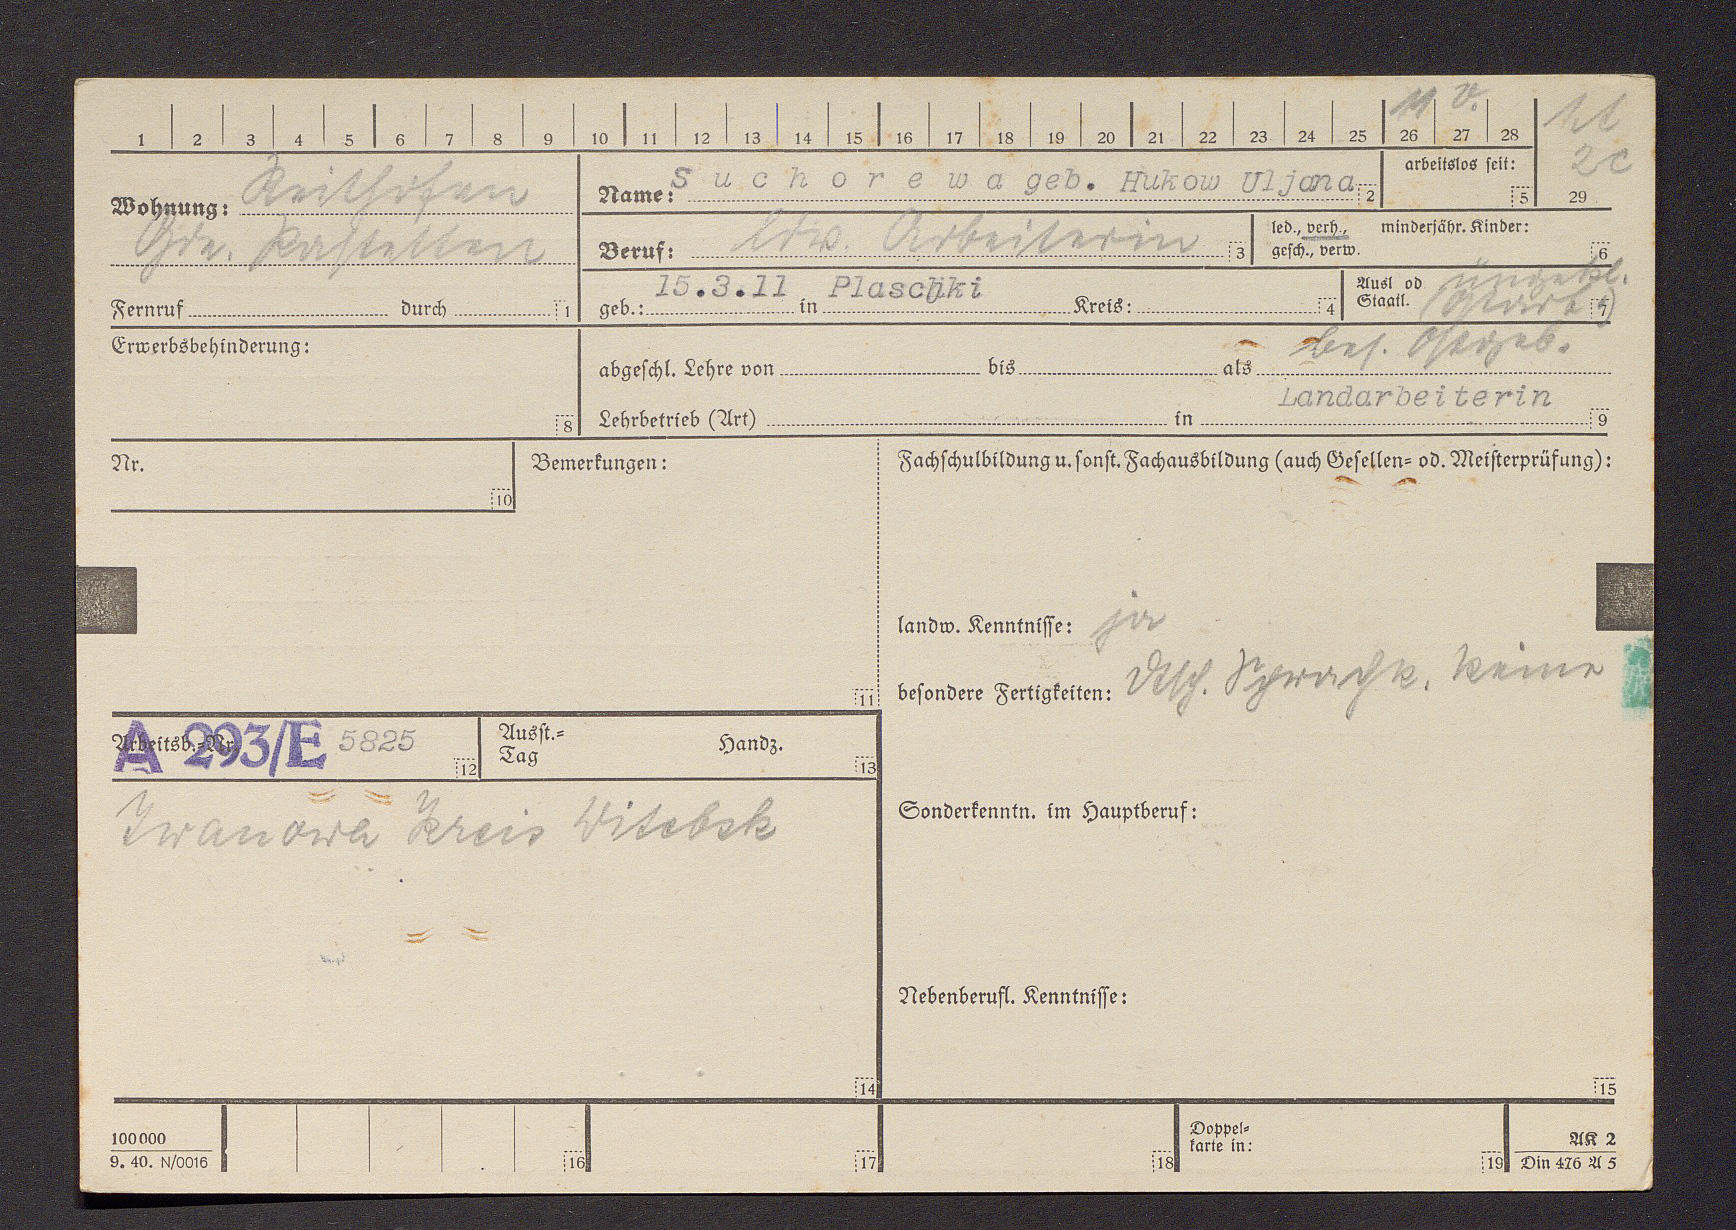 11 v.
1 2 3 4 5 6 7 8 9 10 11 12 13 14 15 16 17 18 19 20 21 22 23 24 25 26 27 28
2c
29
Wohnung: Reithofen
Gde. Pastetten
Fernruf durch 1
Name: Suchorewa geb. Hukow Uljana 2
arbeitslos seit: 5
Beruf: ldw. Arbeiterin 3
led., verh., minderjähr. Kinder:
gesch., verw. 6
geb.: 15.3.11 in Plaschki Kreis: 4
Ausl od
Staatl. ungekl.
7
Erwerbsbehinderung: 8
bes. Ostgeb.
abgeschl. Lehre von bis als
Landarbeiterin
Lehrbetrieb (Art) in 9
Nr. 10
Bemerkungen: 11
Fachschulbildung u. sonst. Fachausbildung (auch Gesellen- od. Meisterprüfung):
landw. Kenntnisse: ja
besondere Fertigkeiten: dtsch. Sprachk. keine
Arbeitsb.-Nr. A 293/E 5825 12
Ausst.-
Tag Handz. 13
Iwanowa Kreis Witebsk
14
Sonderkenntn. im Hauptberuf:
Nebenberufl. Kenntnisse:
15
100000
9. 40. N/0016
16 17 18
Doppel-
karte in: 19
AK 2
Din 476 A 5